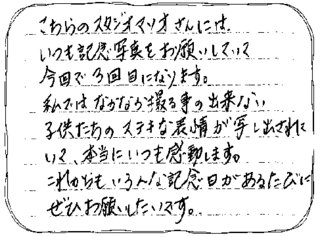 こちらのスタジオマリオさんには
いつも記念写真をお願いしていて
今回で3回目になります。
私ではなかなか撮る事の出来ない
子供たちのステキな表情が写し出されて
いて、本当にいつも感動します。
これからもいろんな記念日があるたびに
ぜひお願いしたいです。